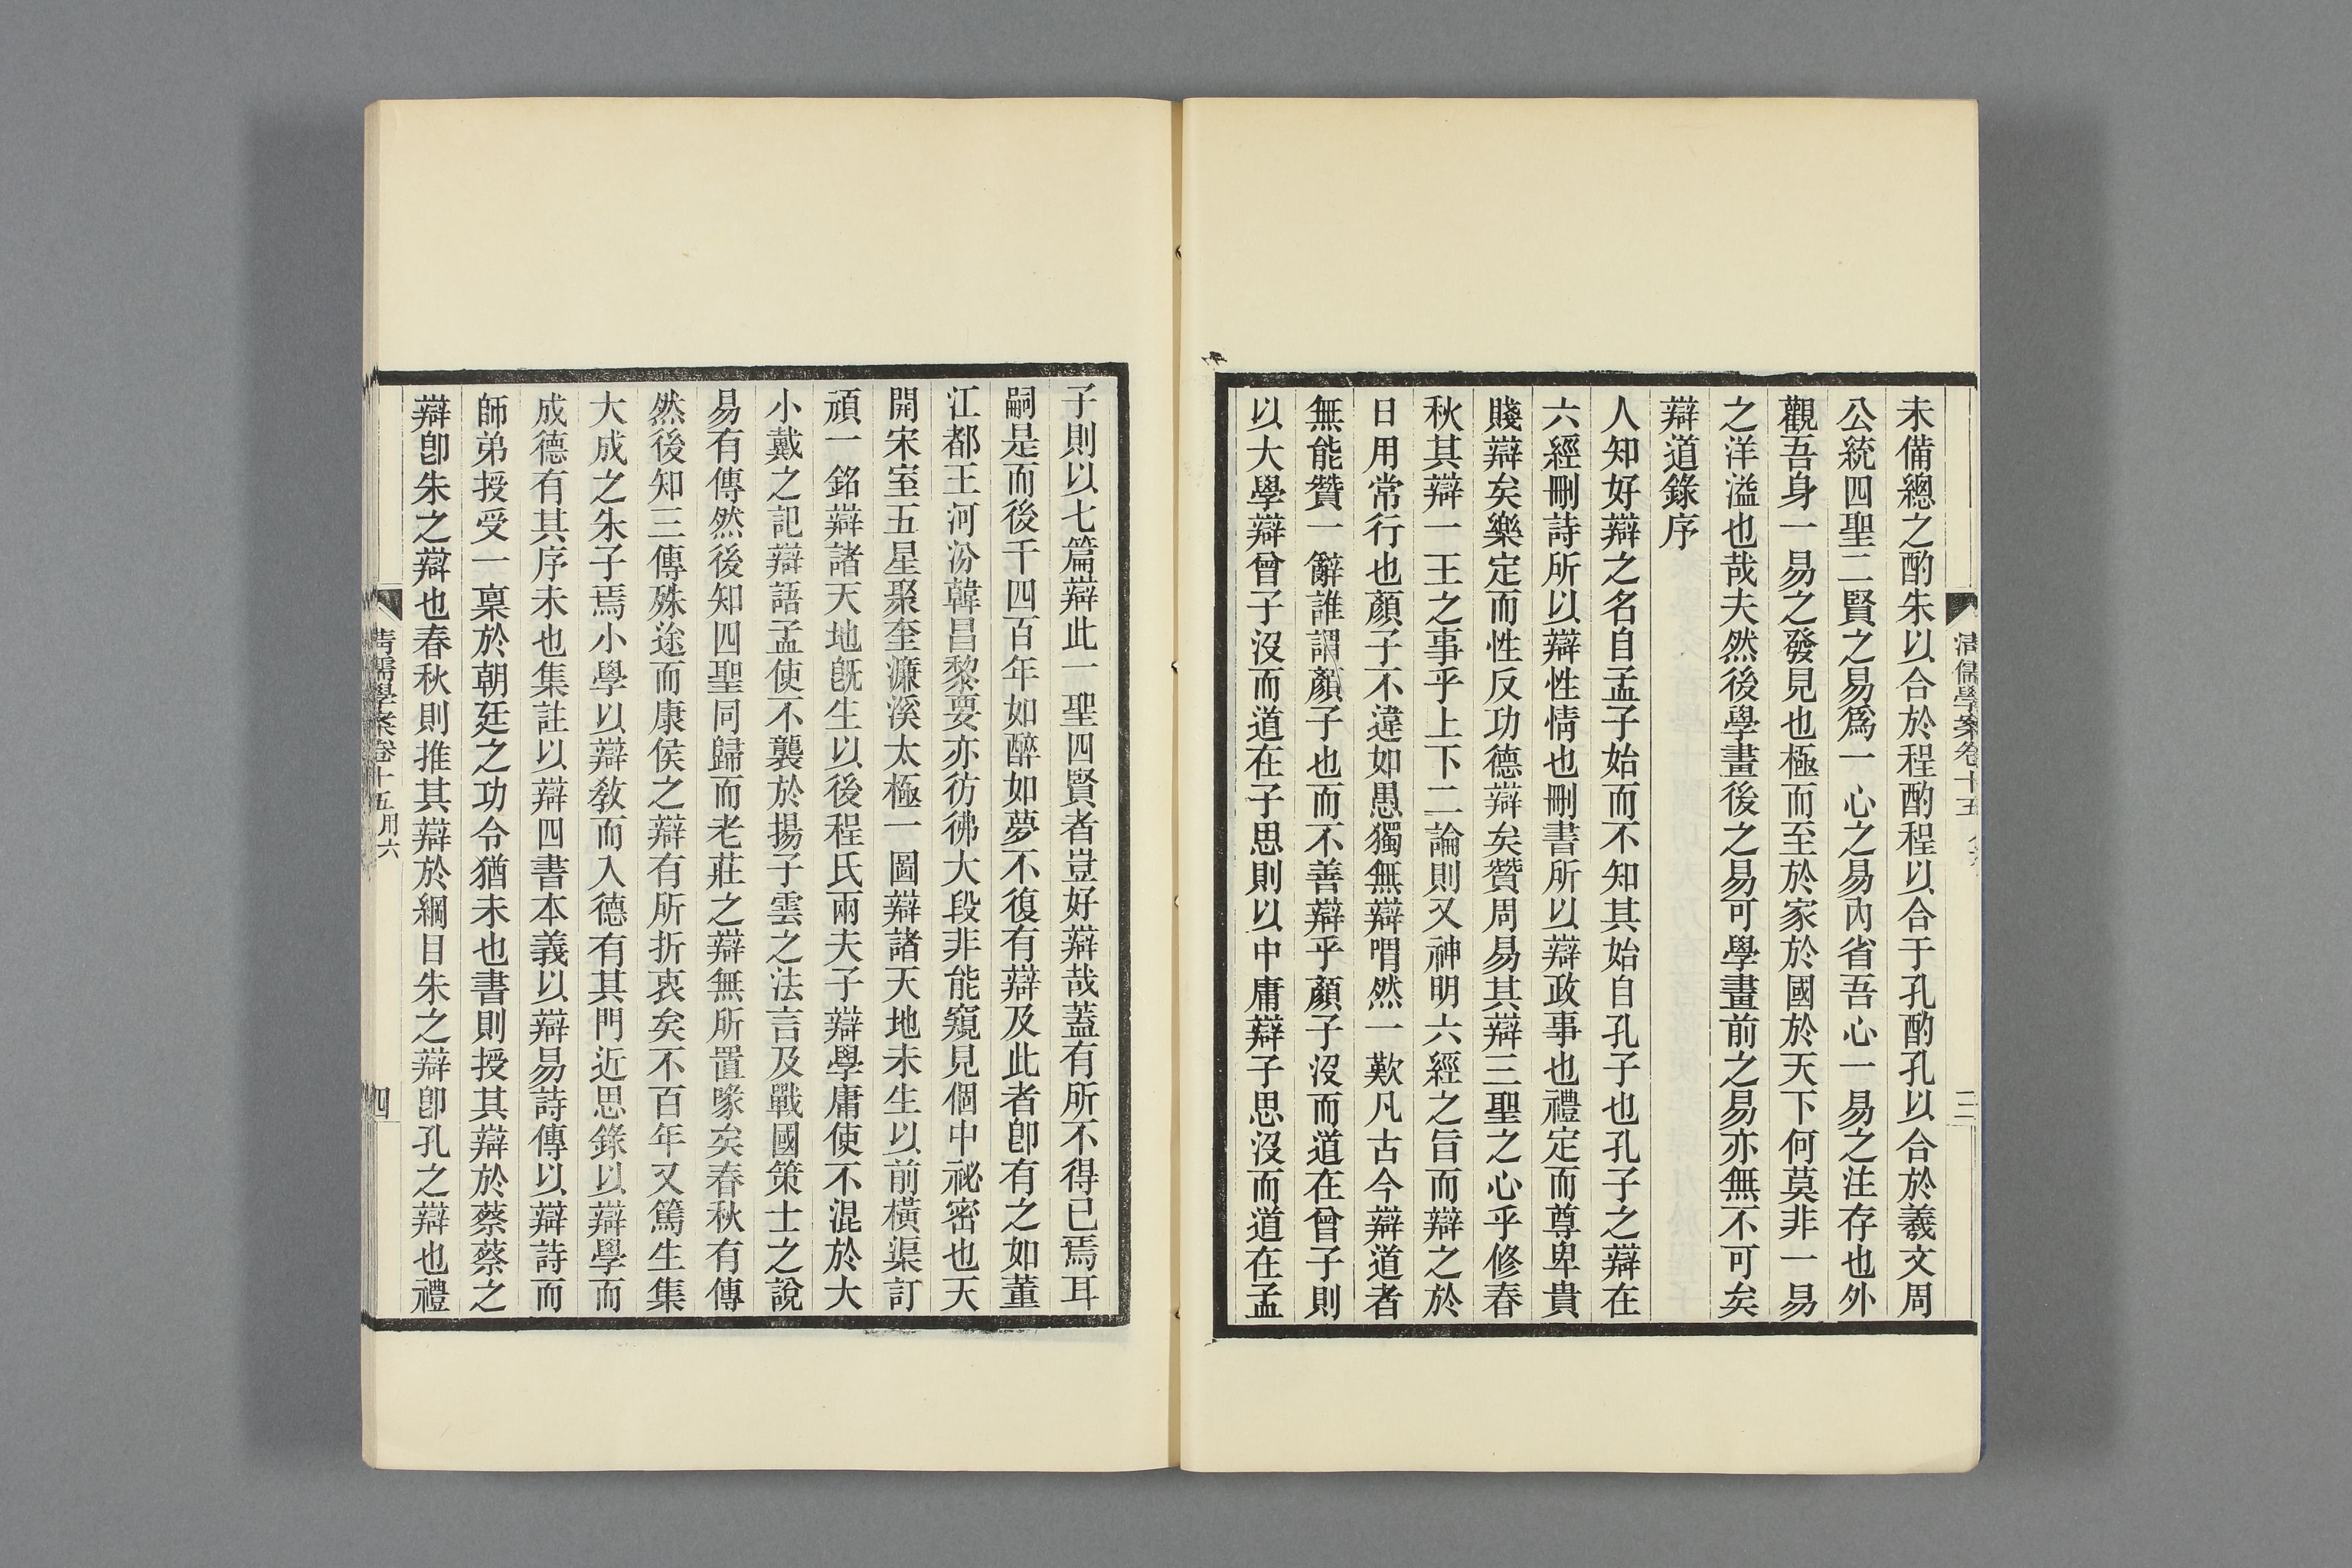 未備總之酌朱以合於程酌程以合于孔酌孔以合於羲文周
公統四聖二賢之易爲一心之易內省吾心一易之注存也外
觀吾身一易之發見也極而至於家於國於天下何莫非一易
之洋溢也哉夫然後學畫後之易可學畫前之易亦無不可矣
辯道錄序
人知好辯之名自孟子始而不知其始自孔子也孔子之辯在
六經刪詩所以辯性情也刪書所以辯政事也禮定而尊卑貴
賤辯矣樂定而性反功德辯矣贊周易其辯三聖之心乎修春
秋其辯一王之事乎上下二論則又神明六經之旨而辯之於
日用常行也顏子不違如愚獨無辯喟然一歎凡古今辯道者
無能贊一辭誰謂顏子也而不善辯乎顏子沒而道在曾子則
以大學辯曾子沒而道在子思則以中庸辯子思沒而道在孟
清儒學案卷十五
三
子則以七篇辯此一聖四賢者豈好辯哉蓋有所不得已焉耳
嗣是而後千四百年如醉如夢不復有辯及此者卽有之如董
江都王河汾韓昌黎要亦彷彿大段非能窺見個中祕密也天
開宋室五星聚奎濂溪太極一圖辯諸天地未生以前橫渠訂
頑一銘辯諸天地旣生以後程氏兩夫子辯學庸使不混於大
小戴之記辯語孟使不襲於揚子雲之法言及戰國策士之說
易有傳然後知四聖同歸而老莊之辯無所置喙矣春秋有傳
然後知三傳殊途而康侯之辯有所折衷矣不百年又篤生集
大成之朱子焉小學以辯教而入德有其門近思錄以辯學而
成德有其序未也集註以辯四書本義以辯易詩傳以辯詩而
師弟授受一稟於朝廷之功令猶未也書則授其辯於蔡蔡之
辯卽朱之辯也春秋則推其辯於綱目朱之辯卽孔之辯也禮
清儒學案卷十五用六
四